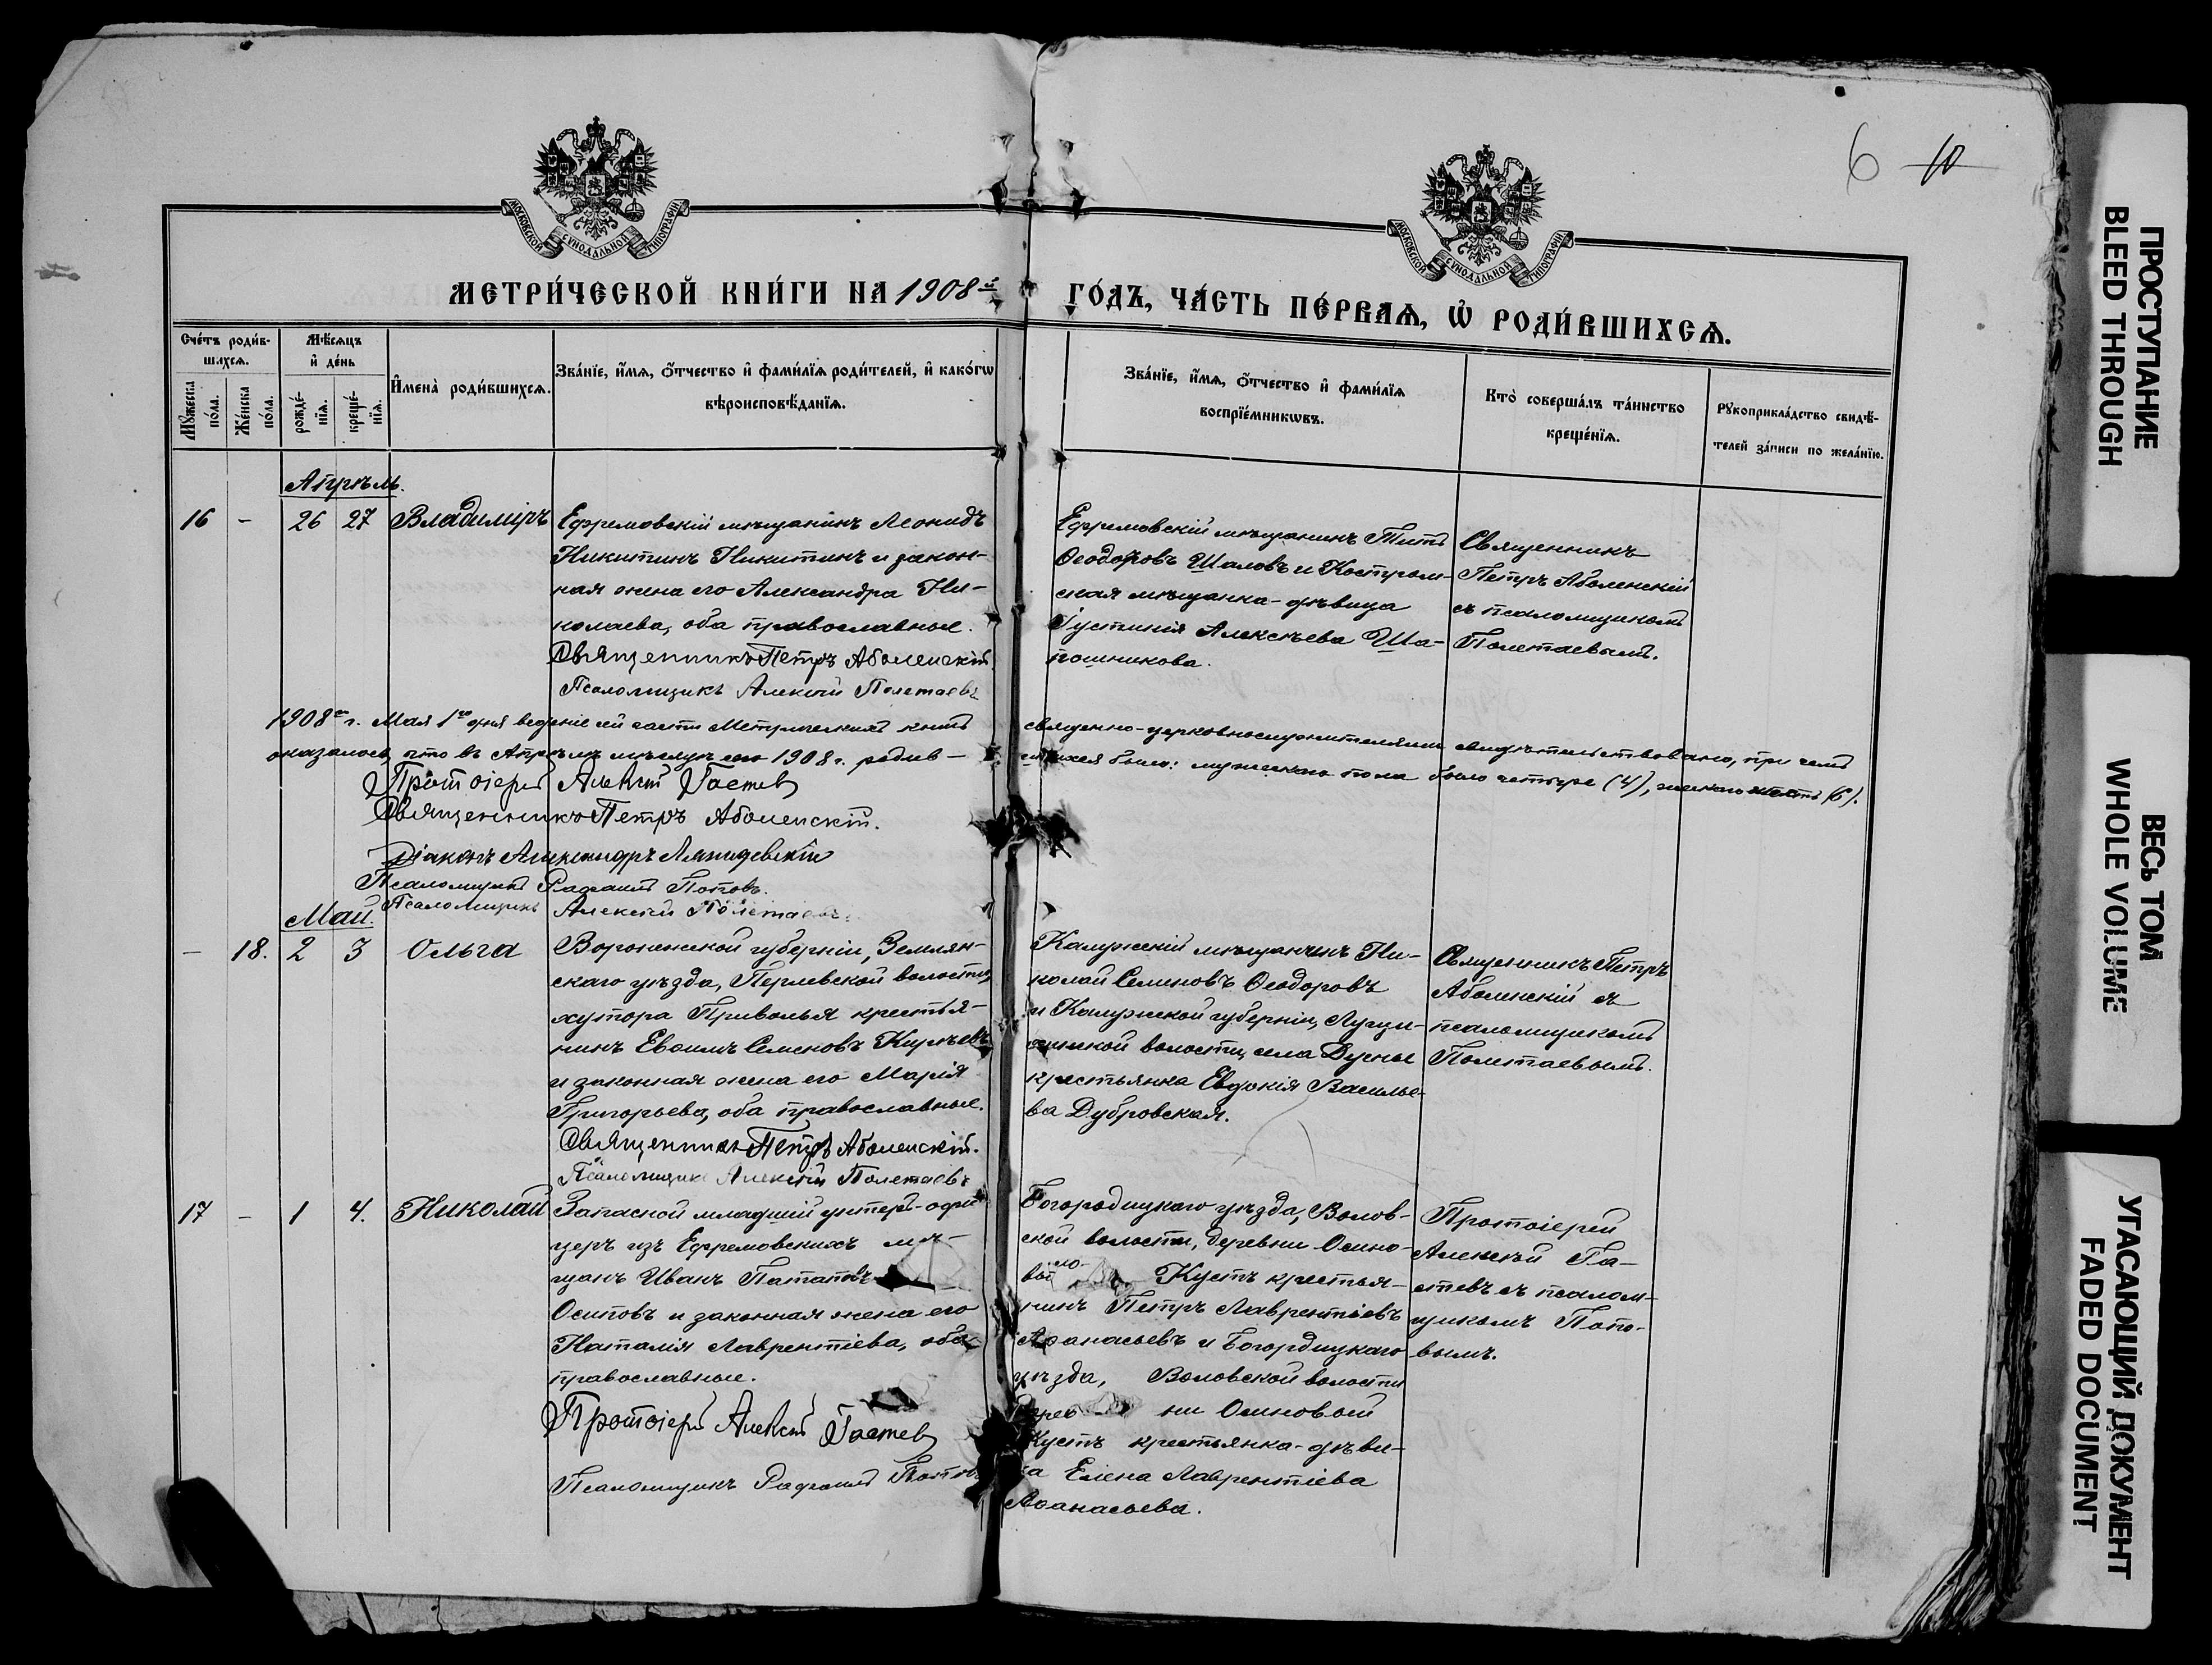 6 10
МОСКОВСКОЙ СѴНОДАЛЬНОЙ ТИПОГРАФІИ
МОСКОВСКОЙ СѴНОДАЛЬНОЙ ТИПОГРАФІИ
МЕТРИ́ЧЕСКОЙ КНИ́ГИ НА 1908й ГО́ДЪ, ЧА́СТЬ ПЕ́РВАѦ, Ѡ҆ РОДИ́ВШИХСѦ.
Счéтъ роди́в-
шихсѧ.
Мꙋ́жеска по́ла.
Же́нска по́ла.
Мѣ́сяцъ
и҆ де́нь
рожде́-
нїѧ.
креще́-
нїѧ.
И҆мена̀ роди́вшихсѧ.
Зва́нїе, и҆́мѧ, ѻ҆́тчество и҆ фами́лїѧ роди́телей, и҆ како́гѡ
вѣроисповѣ́данїѧ.
Зва́нїе, и҆́мѧ, ѻ҆́тчество и҆ фами́лїѧ
воспрїе́мникѡвъ.
Кто̀ соверша́лъ та́инство
креще́нїѧ.
Рꙋкоприкла́дство свидѣ́-
телей за́писи по жела́нїю.
Апрѣль.
16 - 26 27 Владиміръ
Ефремовскій мѣщанинъ Леонидъ
Никитинъ Никитинъ и закон-
ная жена его Александра Ни-
колаева, оба православные.
Священникъ Петръ Аболенскій.
Псаломщикъ Алексій Полетаевъ
Ефремовскій мѣщанинъ Титъ
Ѳеодоровъ Шаловъ и Костром-
ская мѣщанка-дѣвица
Іустинія Алексѣева Ша-
пошникова.
Священникъ
Петръ Аболенскій
съ псаломщикомъ
Полетаевымъ.
1908го г. Мая 1го дня веденіе сей части Метрическихъ книгъ священно-церковнослужителями свидѣтельствовано, при чемъ
оказалось, что въ Апрѣлѣ мѣсяцѣ сего 1908 г. родив-шихся было: мужескаго пола было четыре (4), женскаго шесть (6).
Протоіерей Алексій Гастев
Священникъ Петръ Аболенскій.
Діаконъ Александръ
Псаломщикъ Рафаилъ Поповъ.
Псаломщикъ Алексій Полетаевъ
Май.
- 18. 2 3 Ольга
Воронежской губерніи, Землян-
скаго уѣзда, Перлевской волости,
хутора Приволья крестья-
нинъ Евѳимъ Семеновъ
и законная жена его Марія
Григорьева, оба православные.
Священникъ Петръ Аболенскій.
Псаломщикъ Алексій Полетаевъ
Калужскій мѣщанинъ Ни-
колай Семеновъ Ѳеодоровъ
и Калужской губерніи,
волости, села
крестьянка Евдокія Василье-
ва Дубровская.
Священникъ Петръ
Аболенскій съ
псаломщикомъ
Полетаевымъ.
17 - 1 4. Николай
Запасной младшій унтеръ-офи-
церъ изъ Ефремовскихъ мѣ-
щанъ Иванъ Патаповъ
Осиповъ и законная жена его
Наталія Лаврентіева, оба
православные.
Протоіерей Алексій Гастев
Псаломщикъ Рафаилъ Поповъ
Богородицкаго уѣзда, Волов-
ской волости, деревни Осино-
вый Кустъ крестья-
нинъ Петръ Лаврентіевъ
Аѳанасьевъ и Богордицкаго
уѣзда, Воловской волости
дерев-ни Осиновый
Кустъ крестьянка-дѣви-
ца Елена Лаврентіева
Аѳанасьева.
Протоіерей
Алексѣй Га-
стевъ съ псалом-
щикомъ Попо-
вымъ.
ПРОСТУПАНИЕ
BLEED THROUGH
ВЕСЬ ТОМ
WHOLE VOLUME
УГАСАЮЩИЙ ДОКУМЕНТ
FADED DOCUMENT